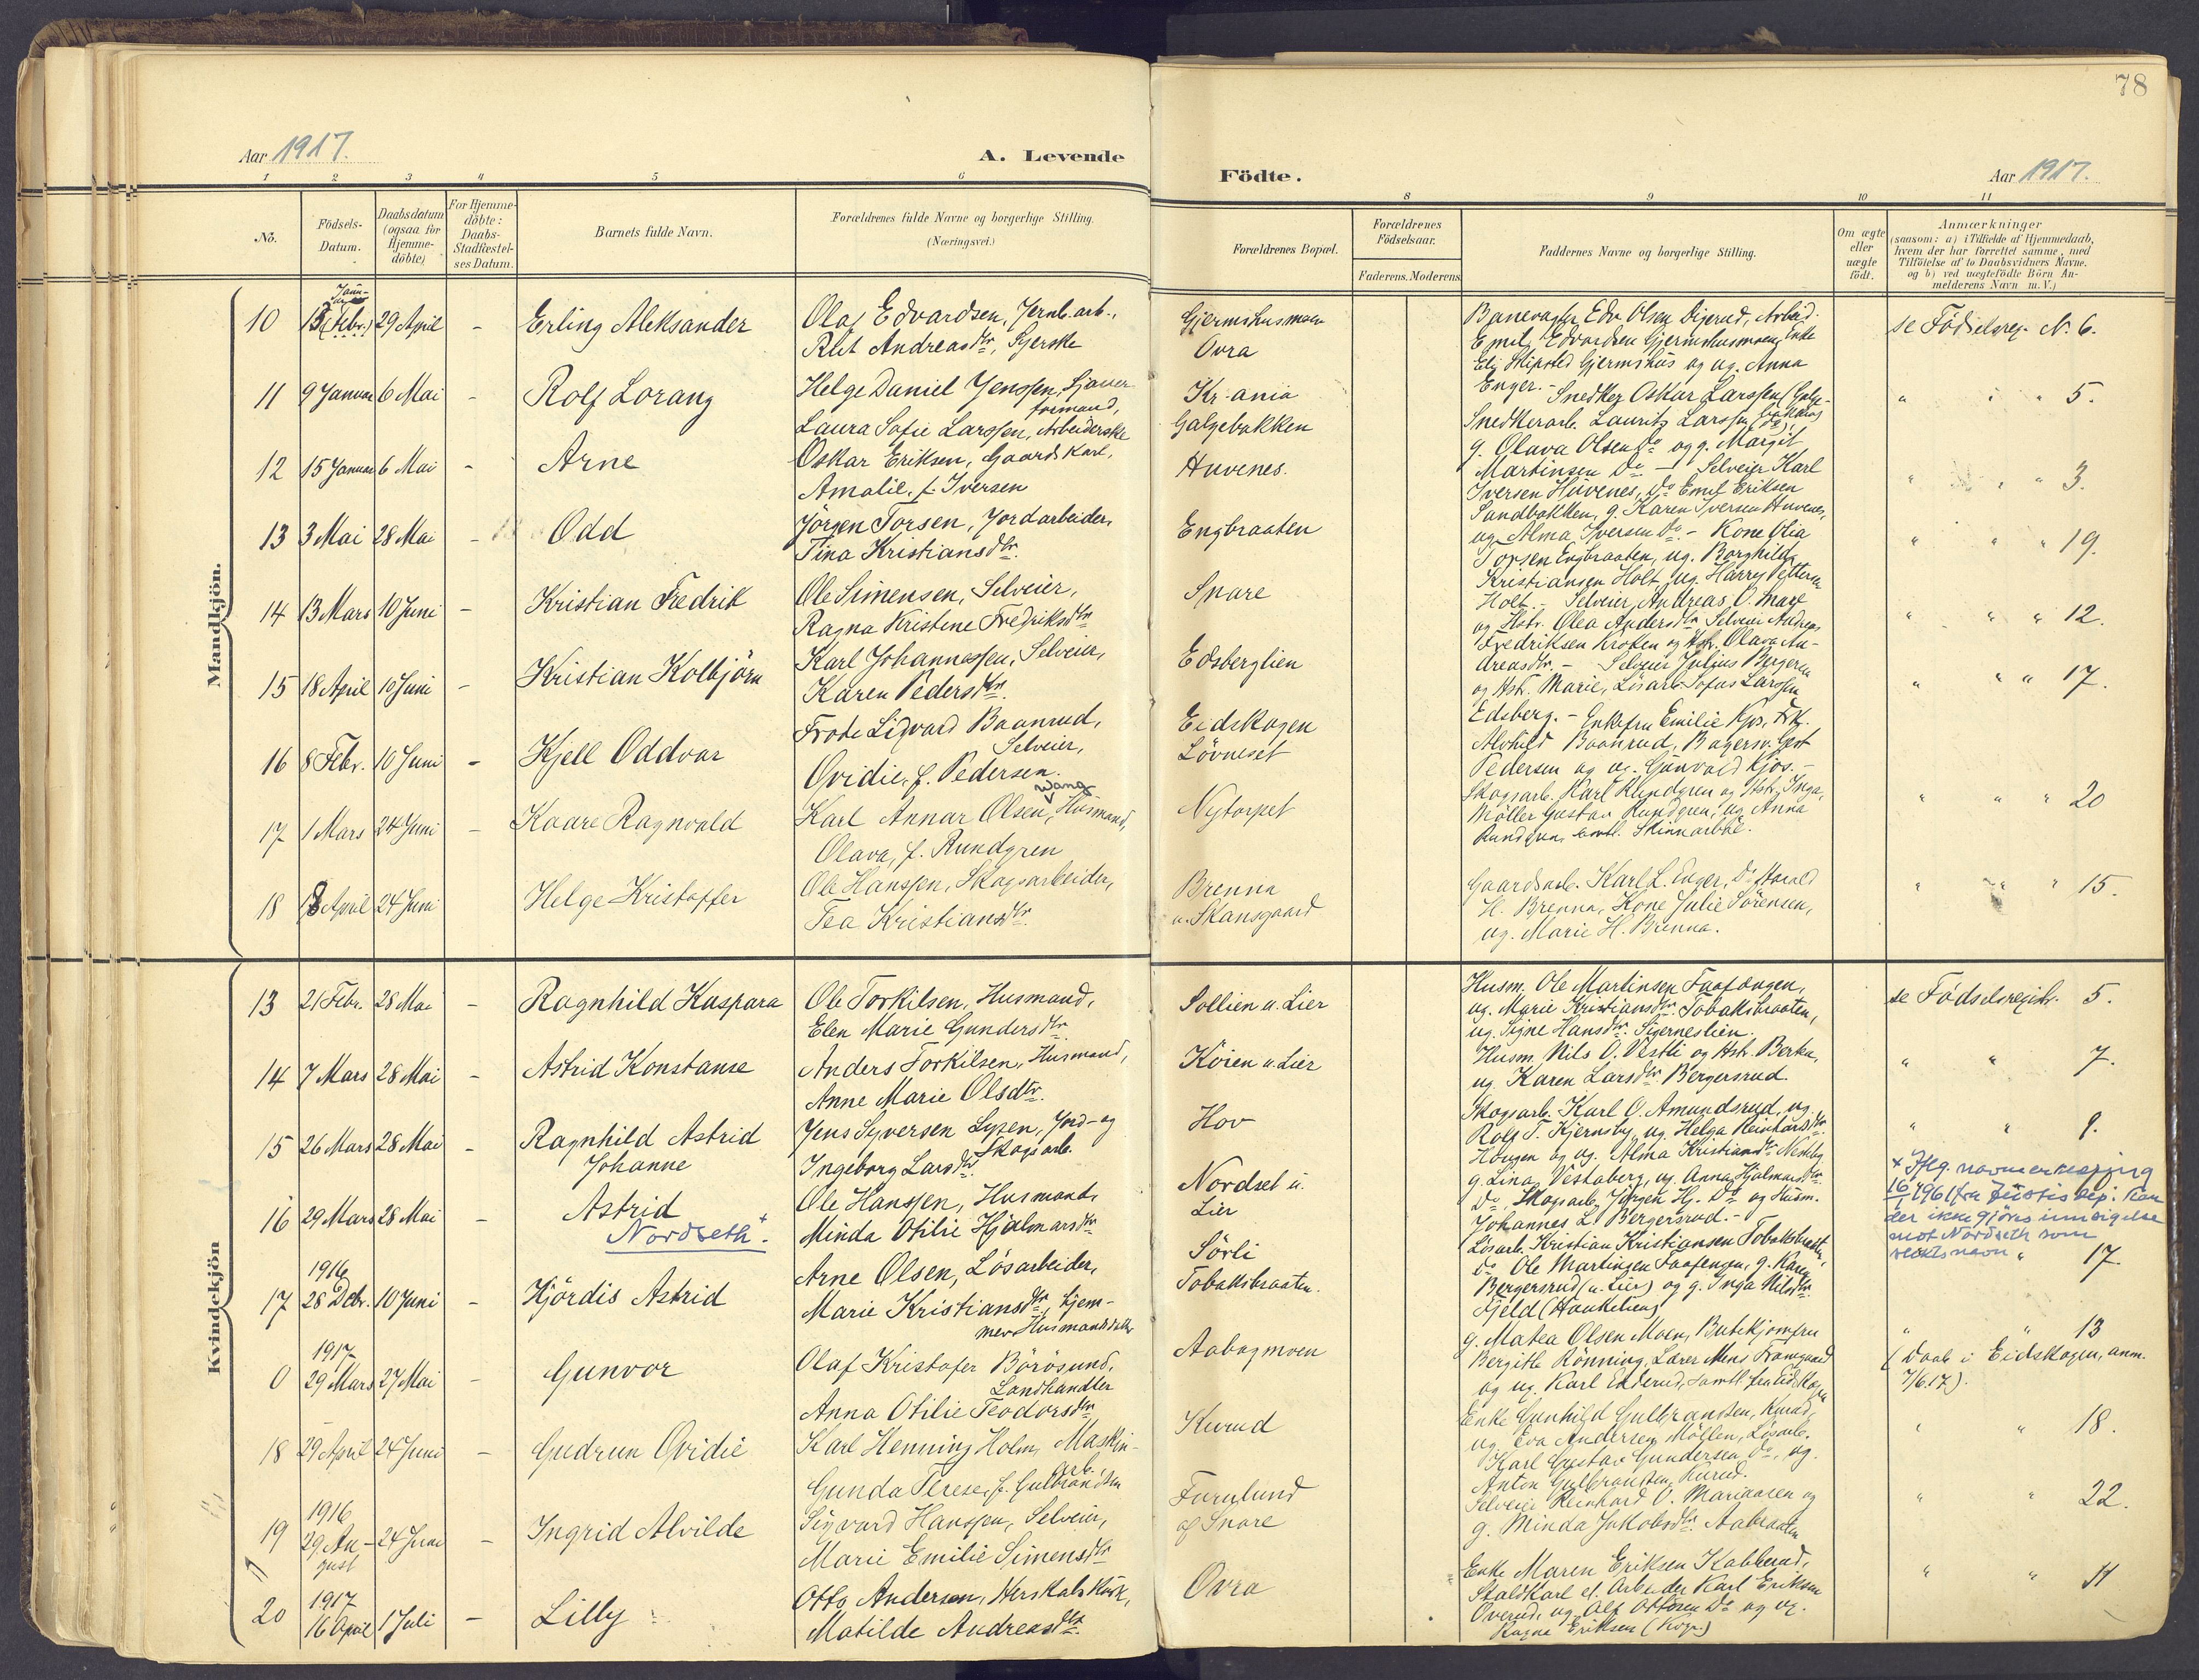 78
Aar 1917.
A. Levende
Födte.
Aar 1917.
1 2 3 4 5 6 8 9 10 11
No.
Födsels-
Datum.
Daabsdatum
(ogsaa for
Hjemme-
döbte)
For Hjemme-
döbte:
Daabs-
Stadfæstel-
ses Datum.
Barnets fulde Navn.
Forældrenes fulde Navne og borgerlige Stilling.
(Næringsvei.)
Forældrenes Bopæl.
Forældrenes
Födselsaar.
Faderens. Moderens
Faddernes Navne og borgerlige Stilling.
Om ægte
eller
uægte
födt.
Anmærkninger
(saasom: a) i Tilfælde af Hjemmedaab,
hvem der har forrettet samme, med
Tilföielse af to Daabsvidners Navne.
og b) ved uægtefödte Börn An-
melderens Navn m. V.)
Mandkjön.
10 (Febr.) 29 April - Erling Aleksander
Olaf Edvardsen, Jernb. arb.,
Rut Andreasdtr, Syerske
Gjermshusmoen
Ovra
Banevagter Edv. Olsen Digerud, Arbeid.
Emil Edvardsen Gjermshusmoen, Enke
Gjermshus og ug. Anna
Enger. -
se Födselsreg. N. 6.
11 9 Januar 6 Mai - Rolf Lorang
Helge Daniel Jenssen, Sjauer
formand,
Laura Sofie Larssen, Arbeiderske
Kr.ania
Galgebakken
Snedker Oskar Larssen (Galge-
Snedkerarb. Lauritz Larssen
g. Olava Olsen Do og g. Margit
Martinsen Do -
" " " 5.
12 15 Januar 6 Mai - Arne
Oskar Eriksen, Gaardskarl,
Amalie, f. Iversen
Huvenes.
Selveier Karl
Iversen Huvenes, Do Emil Eriksen
Sandbakken, g. Karen Iversen Huvenes,
ug. Alma Iversen Do. -
" " " 3.
13 3 Mai 28 Mai - Odd
Jörgen Torsen, Jordarbeider,
Tina Kristiansdtr.
Engbraaten
Kone Olia
Torsen Engbraaten, ug. Borghild
Kristiansen Holt, ug. Harry Pettersen
Holt. -
" " " 19.
14 13 Mars 10 Juni - Kristian Fredrik
Ole Simensen, Selveier,
Ragna Kristine Fredriksdtr
Snare
Selveier Andreas O. Snare
og Hstr. Olea Andersdtr. Selveier Andreas
Fredriksen Kroken og Hstr. Olava An-
dreasdtr. -
" " " 12.
15 18 April 10 Juni - Kristian Kolbjörn
Karl Johannessen, Selveier,
Karen Pedersdtr.
Edsberglien
Selveier Julius Bergersen
og Hstr. Marie, Lösarb. Sofus Larssen
Edsberg. -
" " " 17.
16 8 Febr. 10 Juni - Kjell Oddvar
Frode Sigvard Baanrud,
Selveier,
Ovidie, f. Pedersen.
Eidskogen
Lövneset
Enkefru Emilie Kjos, Frk.
Alvhild Baanrud, Bagersv. Gust
Pedersen og ug. Gunvald Kjos. -
17 1 Mars 24 Juni - Kaare Ragnvald
Wang
Karl Annar Olsen, Husmand,
Olava, f. Rundgren
Nytorpet
Skogsarb. Karl Rundgren og Hstr. Inga,
Möller Gustav Rundgren, ug. Anna
Rundgren, samtl. Skinnarböl.
" " " 20
18 18 April 24 Juni Helge Kristoffer
Ole Hanssen, Skogsarbeider,
Tea Kristiansdtr.
Brenna
u. Skansgaard
Gaardsarb. Karl L. Enger, Do Harald
H. Brenna, Kone Julie Sörensen,
ug. Marie H. Brenna.
" " " 15.
Kvindekjön
13 21 Febr. 28 Mai - Ragnhild Kaspara
Ole Torkilsen, Husmand,
Elen Marie Gundersdtr.
Sollien u. Lier
Husm. Ole Martinsen Faafengen,
ug. Marie Kristiansdtr. Tobaksbraaten,
ug. Signe Hansdtr. Sigerneslien.
se Födselsregistr. 5.
14 7 Mars 28 Mai - Astrid Konstanse
Anders Torkilsen, Husmand,
Anne Marie Olsdtr.
Köien u. Lier
Husm. Nils O. Vestli og Hstr. Berta,
ug. Karen Larsdtr. Bergersrud.
" " 7.
15 26 Mars 28 Mai - Ragnhild Astrid
Johanne
Jens Syversen Lysen, Jord- og
Skogsarb.
Ingeborg Larsdtr.
Hov
Skogsarb. Karl O. Amundsrud, ug.
Rolf T. Kjernsby, ug. Helga Reinhardsdtr.
Hougen og ug. Alma Kristiansdtr. Nestby
" " 9.
16 29 Mars 28 Mai - Astrid
Nordseth +
Ole Hanssen, Husmand,
Minda Otilie Hjalmarsdtr
Nordset u.
Lier
g. Lina Vestaberg, ug. Anna Hjalmarsdtr.
Do, Skogsarb. Jörgen Hj. Do og Husm.
Johannes L. Bergersrud. -
+ Iflg. navneerklæring
16/ 1961 fra Justisdep. kan
der ikke gjöres innsigelse
mot Nordseth som
slektsnavn " 17.
1916
17 28 Dcbr. 10 Juni - Hjördis Astrid
Arne Olsen, Lösarbeider,
Marie Kristiansdtr, hjem-
mev. Husmandsdatter
Sörli
Tobaksbraaten.
Lösarb. Kristian Kristiansen Tobaksbraaten,
Do Ole Martinsen Faafengen, g. Karen
Bergersrud (u. Lier) og g. Inga Nilsdtr.
Fjeld (Haukelien)
" " 13
1917
0 29 Mars 27 Mai - Gunvor
Olaf Kristofer Börösund,
Landhandler
Anna Otilie Teodorsdtr
Aabogmoen
g. Matea Olsen Moen, Butikjomfru
Bergitte Rönning, Lærer Mens Framgaard
og ug. Karl Enderud, samtl. fra Eidskogen
(Daab i Eidskogen, anm.
7/6.17).
18 29 April 24 Juni - Gudrun Ovidie
Karl Henning Holm, Maskin-
arb.
Gunda Terese, f. Gulbrandsen
Kurud
Enke Gunhild Gulbrandsen, Kurud,
ug. Eva Andersen Möllen, Lösarb.
Karl Gustav Gundersen Do, ug.
Anton Gulbrandsen, Kurud.
" " 18.
1916
19 29 Au- 24 Juni - Ingrid Alvilde
gust
Sigvard Hanssen, Selveier,
Marie Emilie Simensdtr
Furulund
af Snare
Selveier Reinhard O. Mariaasen og
g. Minda Jakobsdtr. Aabraaten
" " 22.
1917
20 16 April 1 Juli - Lilly
Otto Andersen, Herskabskusk,
Matilde Andreasdtr.
Ovra
Enke Maren Eriksen Kabberud,
Staldkarl el. Arbeider Karl Eriksen
Overud, ug. Alf Ottosen Do og ug.
Ragna Eriksen (Kogr.)
" " 11